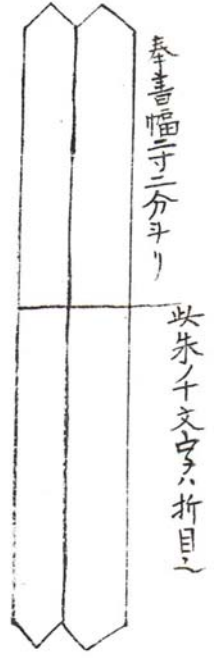 奉書幅二寸二分斗リ
此朱ノ十文字ハ折目也